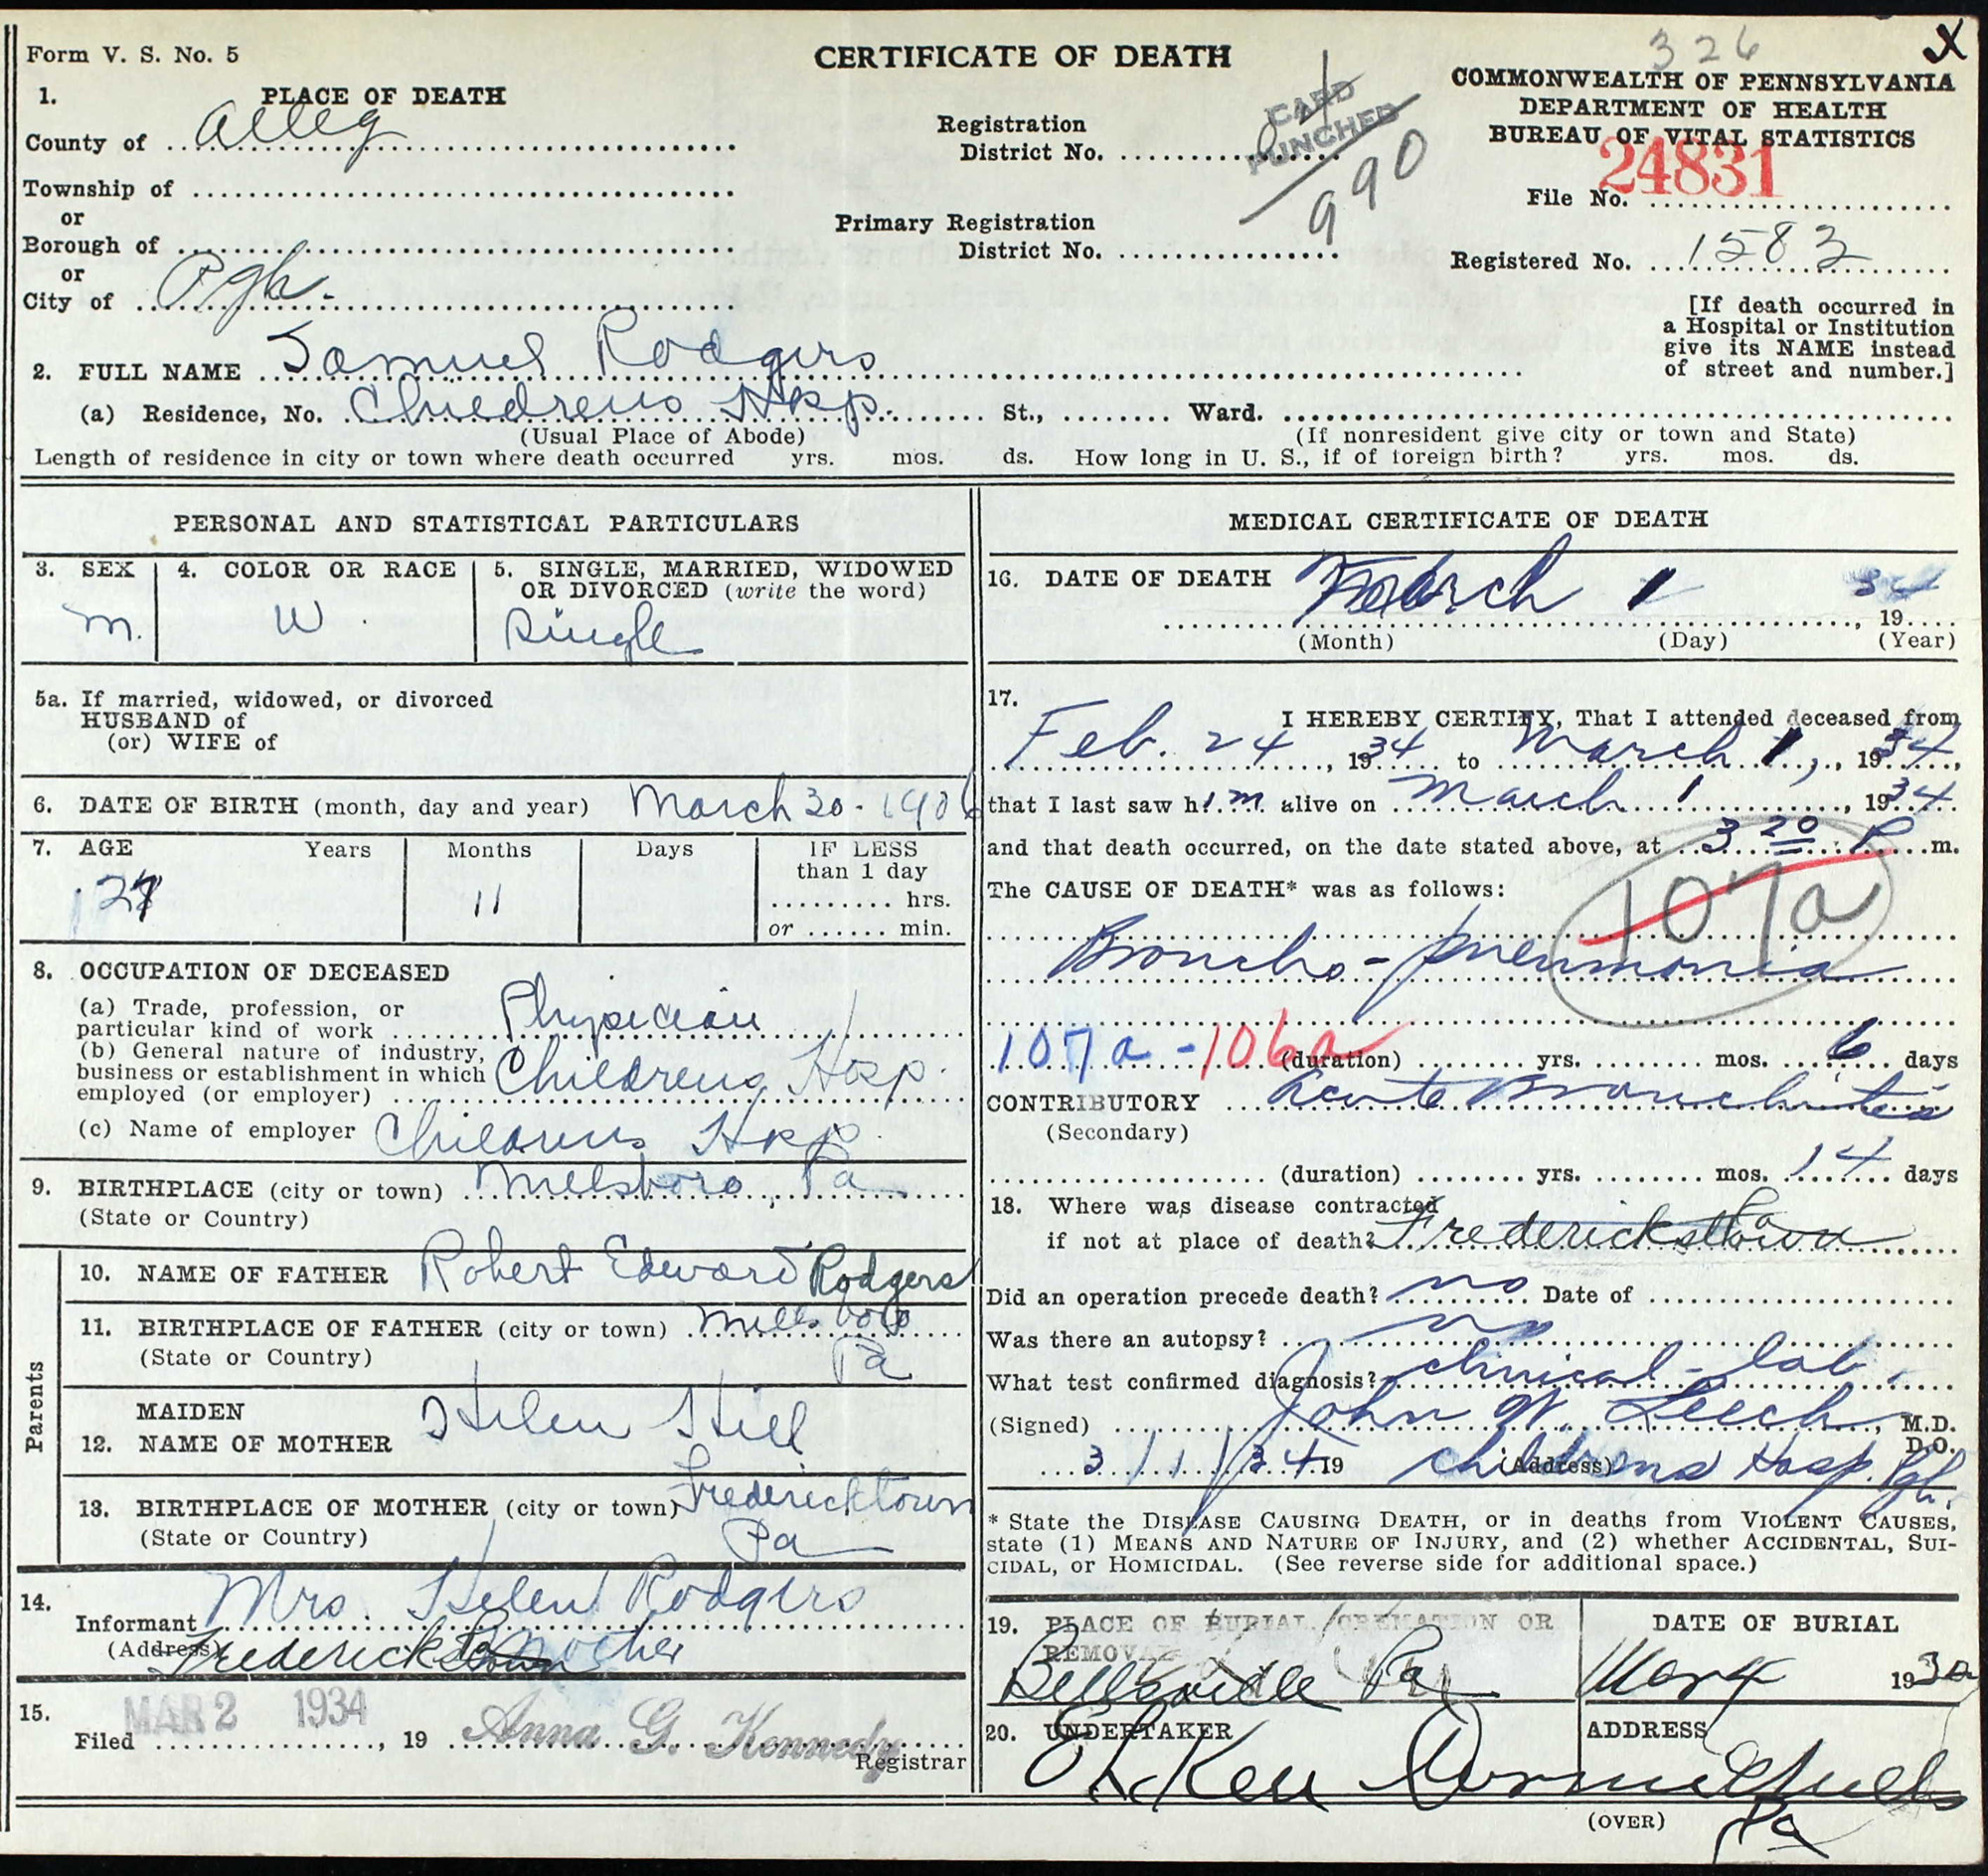 Form V. S. No. 5
CERTIFICATE OF DEATH
326
X
1. PLACE OF DEATH
County of Alleg
Township of
or
Borough of
or
City of Pgh.
Registration
District No.
CARD
PUNCHED
990
Primary Registration
District No.
COMMONWEALTH OF PENNSYLVANIA
DEPARTMENT OF HEALTH
BUREAU OF VITAL STATISTICS
File No. 24831
Registered No. 1583
[If death occurred in
a Hospital or Institution
give its NAME instead
of street and number.]
2. FULL NAME Samuel Rodgers
(a) Residence, No. Childrens Hosp. St., Ward.
(Usual Place of Abode) (If nonresident give city or town and State)
Length of residence in city or town where death occurred yrs. mos. ds. How long in U. S., if of foreign birth? yrs. mos. ds.
PERSONAL AND STATISTICAL PARTICULARS
3. SEX 4. COLOR OR RACE 5. SINGLE, MARRIED, WIDOWED
OR DIVORCED (write the word)
m. W Single
5a. If married, widowed, or divorced
HUSBAND of
(or) WIFE of
6. DATE OF BIRTH (month, day and year) March 30 - 1906
7. AGE Years Months Days IF LESS
than 1 day
27 11 hrs.
or min.
8. OCCUPATION OF DECEASED
(a) Trade, profession, or
particular kind of work Physician
(b) General nature of industry,
business or establishment in which
employed (or employer) Childrens Hosp.
(c) Name of employer Childrens Hosp.
9. BIRTHPLACE (city or town) Millsboro, Pa
(State or Country)
Parents
10. NAME OF FATHER Robert Edward Rodgers
11. BIRTHPLACE OF FATHER (city or town) Millsboro
(State or Country) Pa
MAIDEN
12. NAME OF MOTHER Helen Hill
13. BIRTHPLACE OF MOTHER (city or town) Fredericktown
(State or Country) Pa
14.
Informant Mrs. Helen Rodgers
(Address) Fredericktown mother
15. MAR 2 1934
Filed , 19 Anna G. Kennedy
Registrar
MEDICAL CERTIFICATE OF DEATH
16. DATE OF DEATH March 1 34
, 19
(Month) (Day) (Year)
17.
I HEREBY CERTIFY, That I attended deceased from
Feb. 24, 1934 to March 1, 1934,
that I last saw him alive on March 1, 1934
and that death occurred, on the date stated above, at 3 20 P m.
The CAUSE OF DEATH* was as follows:
107a
Broncho-pneumonia
107a - 106a (duration) yrs. mos. 6 days
CONTRIBUTORY Acute Bronchitis
(Secondary)
(duration) yrs. mos. 14 days
18. Where was disease contracted
if not at place of death? Frederickstown Pa
Did an operation precede death? no Date of
Was there an autopsy? no
What test confirmed diagnosis? clinical - lab.
(Signed) John W. Leech, M.D.
D.O.
3/1/34 19 (Address) Childrens Hosp. Pgh.
* State the DISEASE CAUSING DEATH, or in deaths from VIOLENT CAUSES,
state (1) MEANS AND NATURE OF INJURY, and (2) whether ACCIDENTAL, SUI-
CIDAL, or HOMICIDAL. (See reverse side for additional space.)
19. PLACE OF BURIAL, CREMATION OR
REMOVAL
DATE OF BURIAL
Pa Mar 4 193
20. UNDERTAKER
ADDRESS
(OVER)
Pa